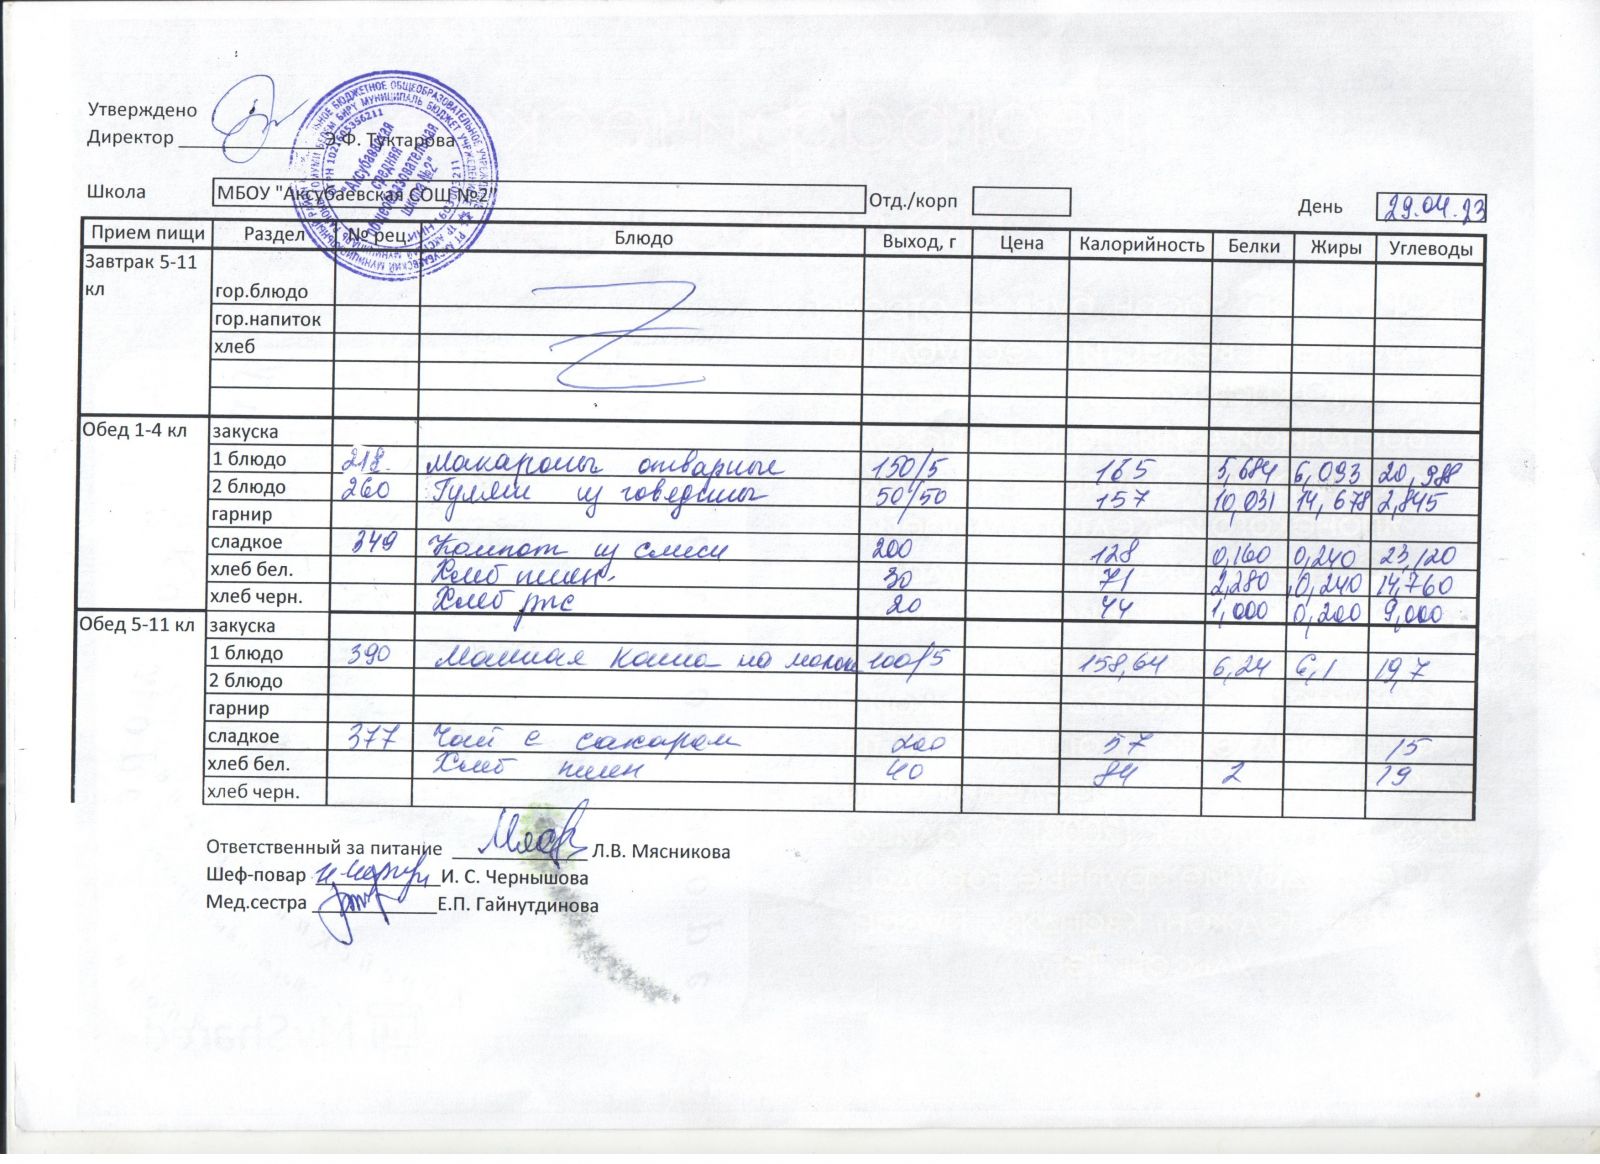 Утверждено
Директор ______________ Э.Ф. Туктарова
Школа МБОУ "Аксубаевская СОШ №2" Отд./корп День 29.04.23
Прием пищи Раздел № рец. Блюдо Выход, г Цена Калорийность Белки Жиры Углеводы
Завтрак 5-11
кл
гор.блюдо
гор.напиток
хлеб
Обед 1-4 кл закуска
1 блюдо 218. Макароны отварные 150/5 165 5,684 6,093 20,988
2 блюдо 260 Гуляш из говядины 50/50 157 10,031 14,678 2,845
гарнир
сладкое 349 Компот из смеси 200 128 0,160 0,240 23,120
хлеб бел. Хлеб пшен. 30 71 2,280 0,240 14,760
хлеб черн. Хлеб рж 20 44 1,000 0,200 9,000
Обед 5-11 кл закуска
1 блюдо 390 Манная каша на молок 100/5 158,64 6,24 6,1 19,7
2 блюдо
гарнир
сладкое 377 Чай с сахаром 200 57 15
хлеб бел. Хлеб пшен 40 84 2 19
хлеб черн.
Ответственный за питание ______________ Л.В. Мясникова
Шеф-повар _____________ И. С. Чернышова
Мед.сестра _____________ Е.П. Гайнутдинова
"Аксубаевская
средняя
общеобразовательная
школа №2"